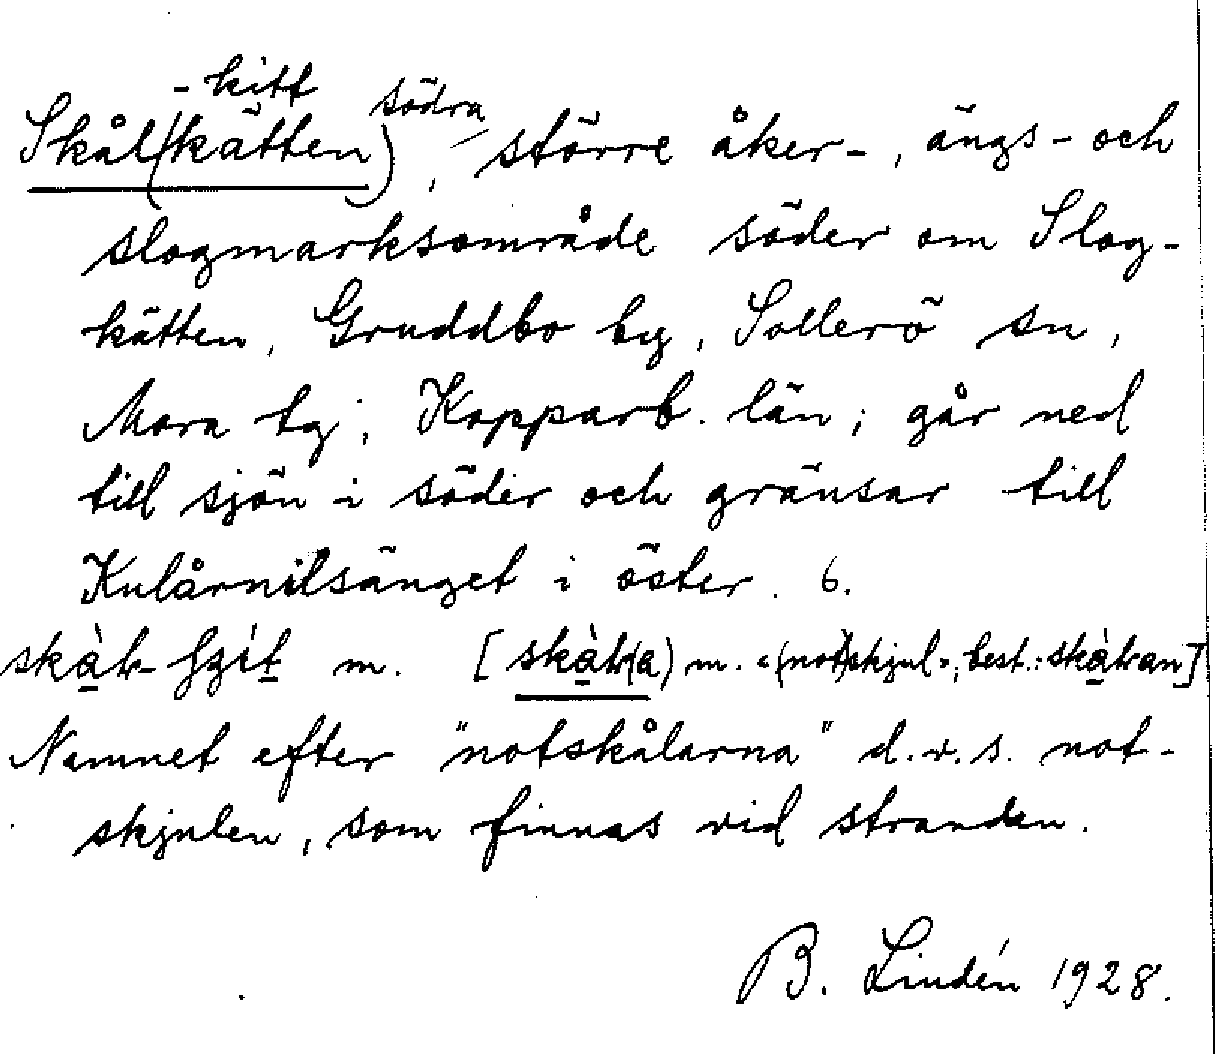 -kitt södra
Skål(kätten), större åker-, ängs- och
slogmarksområde söder om Slog-
kätten, Gruddbo by, Sollerö sn,
Mora tg; Kopparb. län; går ned
till sjön i söder och gränsar till
Kulårnilsänget i öster. 6.
m. m. «(not)skjul», best.:
Namnet efter "notskålarna" d.v.s. not-
skjulen, som finnas vid stranden.
B. Lindén 1928.